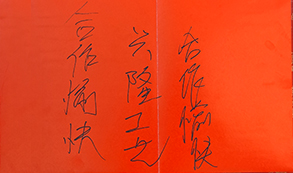 合作愉快
兴隆工艺
合作愉快